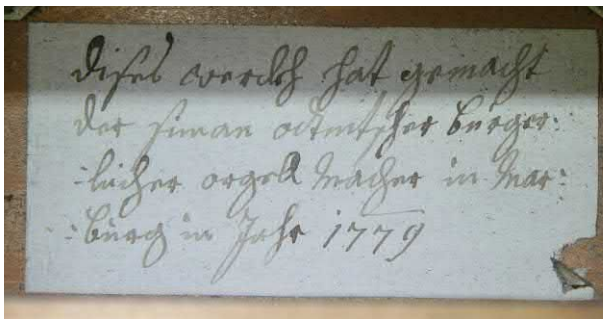 dises werckh hat gemacht
der siman otonitscher burger:
:licher orgell Macher in Mar:
:burg in Jahr 1779